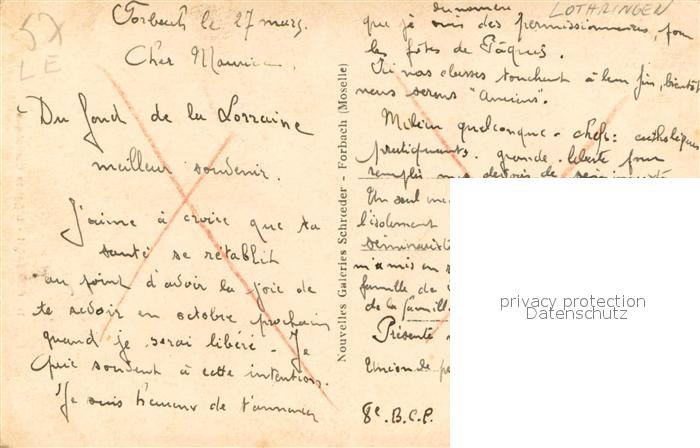 57
LE
Forbach le 27 mars.
Cher Maurice,
Du fond de la Lorraine
meilleur souvenir.
J'aime à croire que ta
santé se rétablit
au point d'avoir la joie de
te revoir en octobre prochain
quand je serai libéré. Je
prie souvent à cette intention.
Je suis heureux de t'annoncer
Nouvelles Galeries Schrœder - Forbach (Moselle)
LOTHRINGEN
du nombre
que je suis des permissionnaires, pour
les fêtes de Pâques.
Ici nos classes touchent à leur fin, bientôt
nous serons "Anciens".
Milieu quelconque - chefs: catholiques
pratiquants. grande liberté pour
remplir nos devoirs de
Un seul
l'isolement
séminariste
m'a mis en
famille de
de la famille
Présente
Union de
8e. B.C.P.
privacy protection
Datenschutz